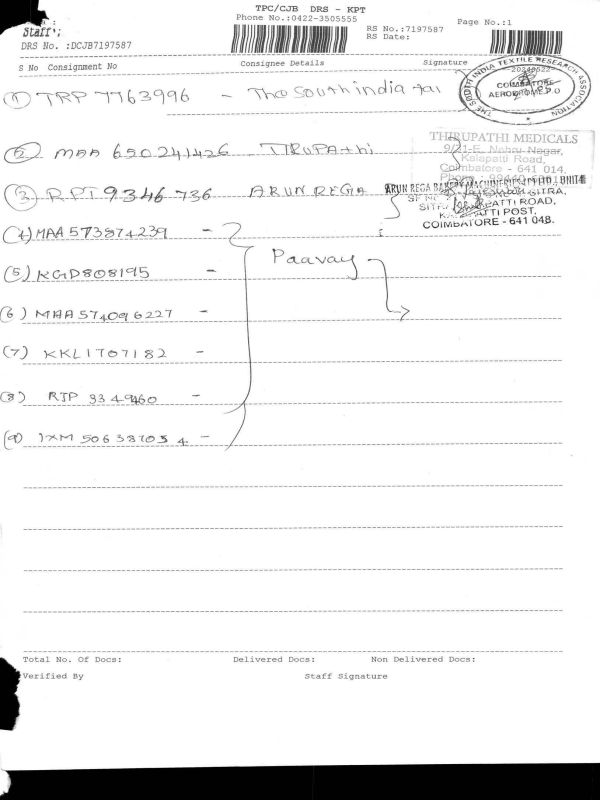 TPC/CJB DRS - KPT
Phone No.:0422-3505555
Page No.:1
Staff:
RS No.:7197587
RS Date:
DRS No. :DCJB7197587
20240522
S No Consignment No Consignee Details Signature
(1) TRP 7763996 - The South india tai
THE SOUTH INDIA TEXTILE RESEARCH ASSOCIATION
COIMBATORE
AERODROME P.O
(2) MAA 650241426 TIRUPAthi
THIRUPATHI MEDICALS
9/21-E, Nehru Nagar,
Kalapatti Road,
Coimbatore - 641 014.
(3) RPT 9346 736 ARUN REGA
ARUN REGA BAKERY MACHINERIES (P) LTD., UNIT-II
SITRA,
PATTI ROAD,
POST,
COIMBATORE - 641 048.
(4) MAA 573874239 -
Paavay
(5) KGD808195 -
(6) MAA 574096227 -
(7) KKL1707182 -
(8) RJP 3349460 -
(9) IXM 506387054 -
Total No. Of Docs: Delivered Docs: Non Delivered Docs:
Verified By Staff Signature